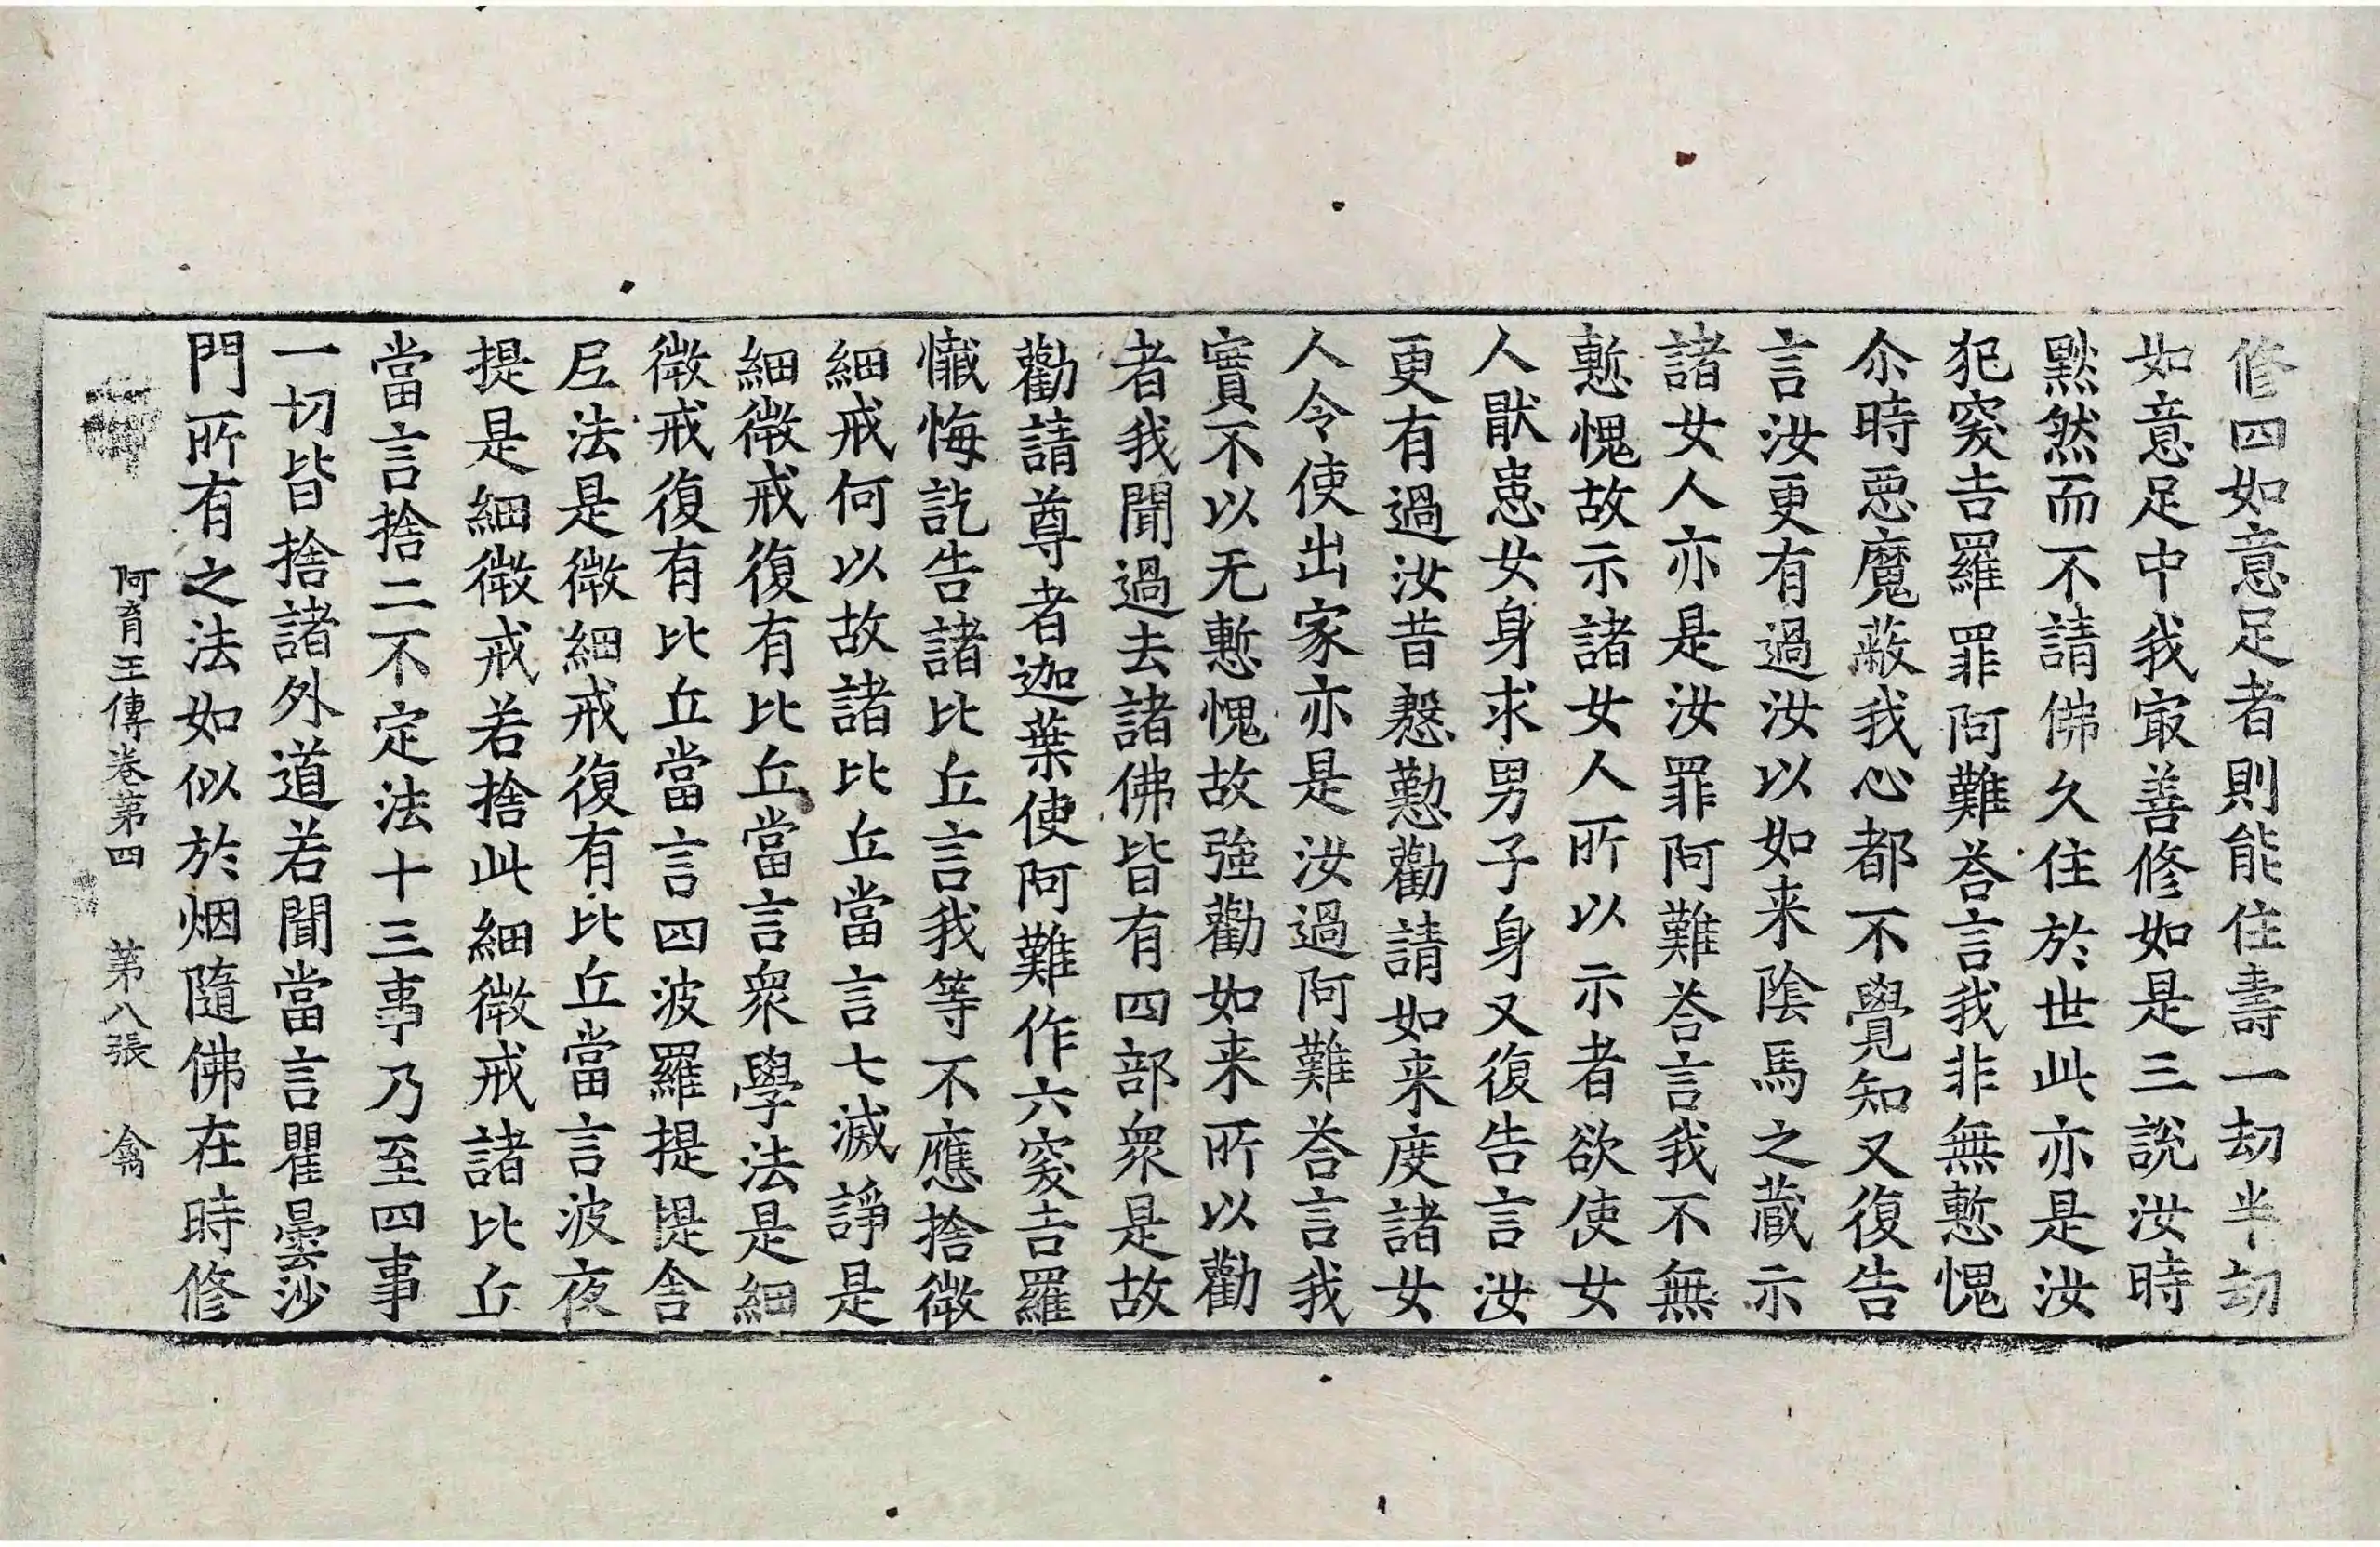 修四如意足者則能住壽一劫半劫
如意足中我㝡善修如是三說汝時
黙然而不請佛久住於世此亦是汝
犯突吉羅罪阿難荅言我非無慙愧
尒時惡魔蔽我心都不覺知又復告
言汝更有過汝以如来陰馬之蔵示
諸女人亦是汝罪阿難荅言我不無
慙愧故示諸女人所以示者欲使女
人猒患女身求男子身又復告言汝
更有過汝昔慇懃勸請如来度諸女
人令使出家亦是汝過阿難荅言我
實不以无慙愧故強勸如来所以勸
者我聞過去諸佛皆有四部衆是故
勸請尊者迦葉使阿難作六突吉羅
懴悔訖告諸比丘言我等不應捨微
細戒何以故諸比丘當言七滅諍是
細微戒復有比丘當言衆學法是細
微戒復有比丘當言四波羅提提舍
尼法是微細戒復有比丘當言波夜
提是細微戒若捨此細微戒諸比丘
當言捨二不定法十三事乃至四事
一切皆捨諸外道若聞當言瞿曇沙
門所有之法如似於烟隨佛在時修
阿育王傳卷第四 第八張 禽